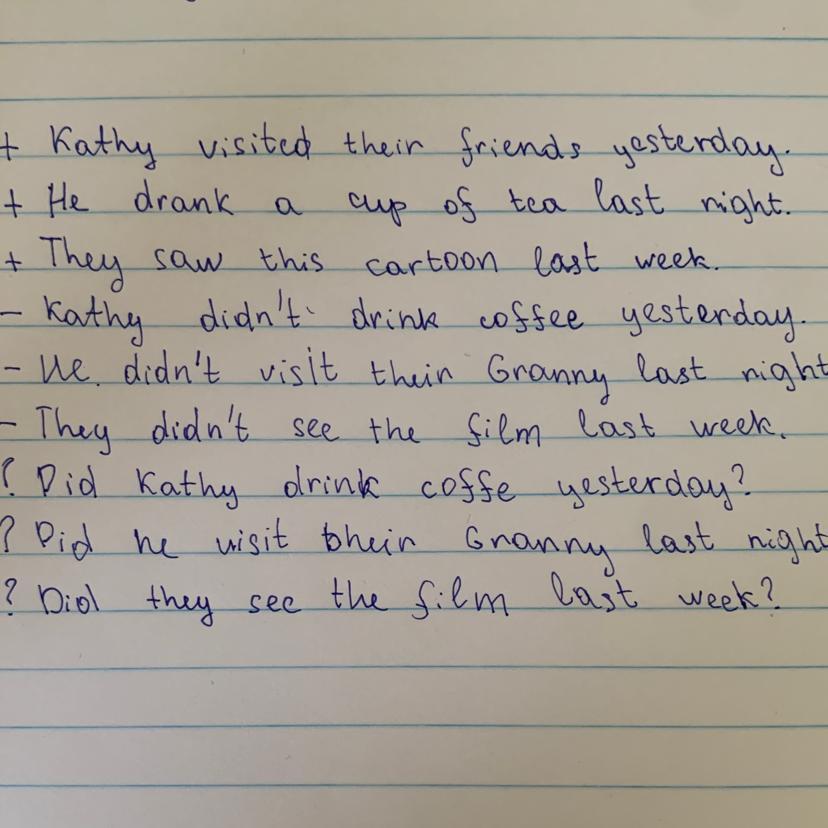 + Kathy visited their friends yesterday.
+ He drank a cup of tea last night.
+ They saw this cartoon last week.
- Kathy didn't drink coffee yesterday.
- He didn't visit their Granny last night
- They didn't see the film last week.
? Did Kathy drink coffe yesterday?
? Did he visit their Granny last night
? Did they see the film last week?